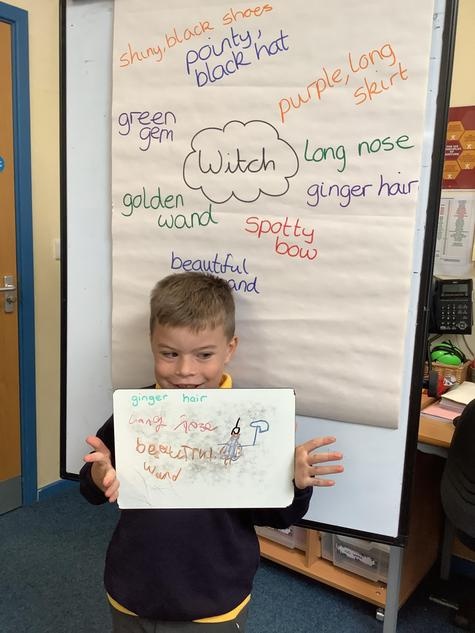 shiny, black shoes
pointy,
black hat
purple, long
skirt
green
gem
Witch
long nose
ginger hair
golden
wand
spotty
bow
beautiful
ginger hair
long nose
beautiful
wand